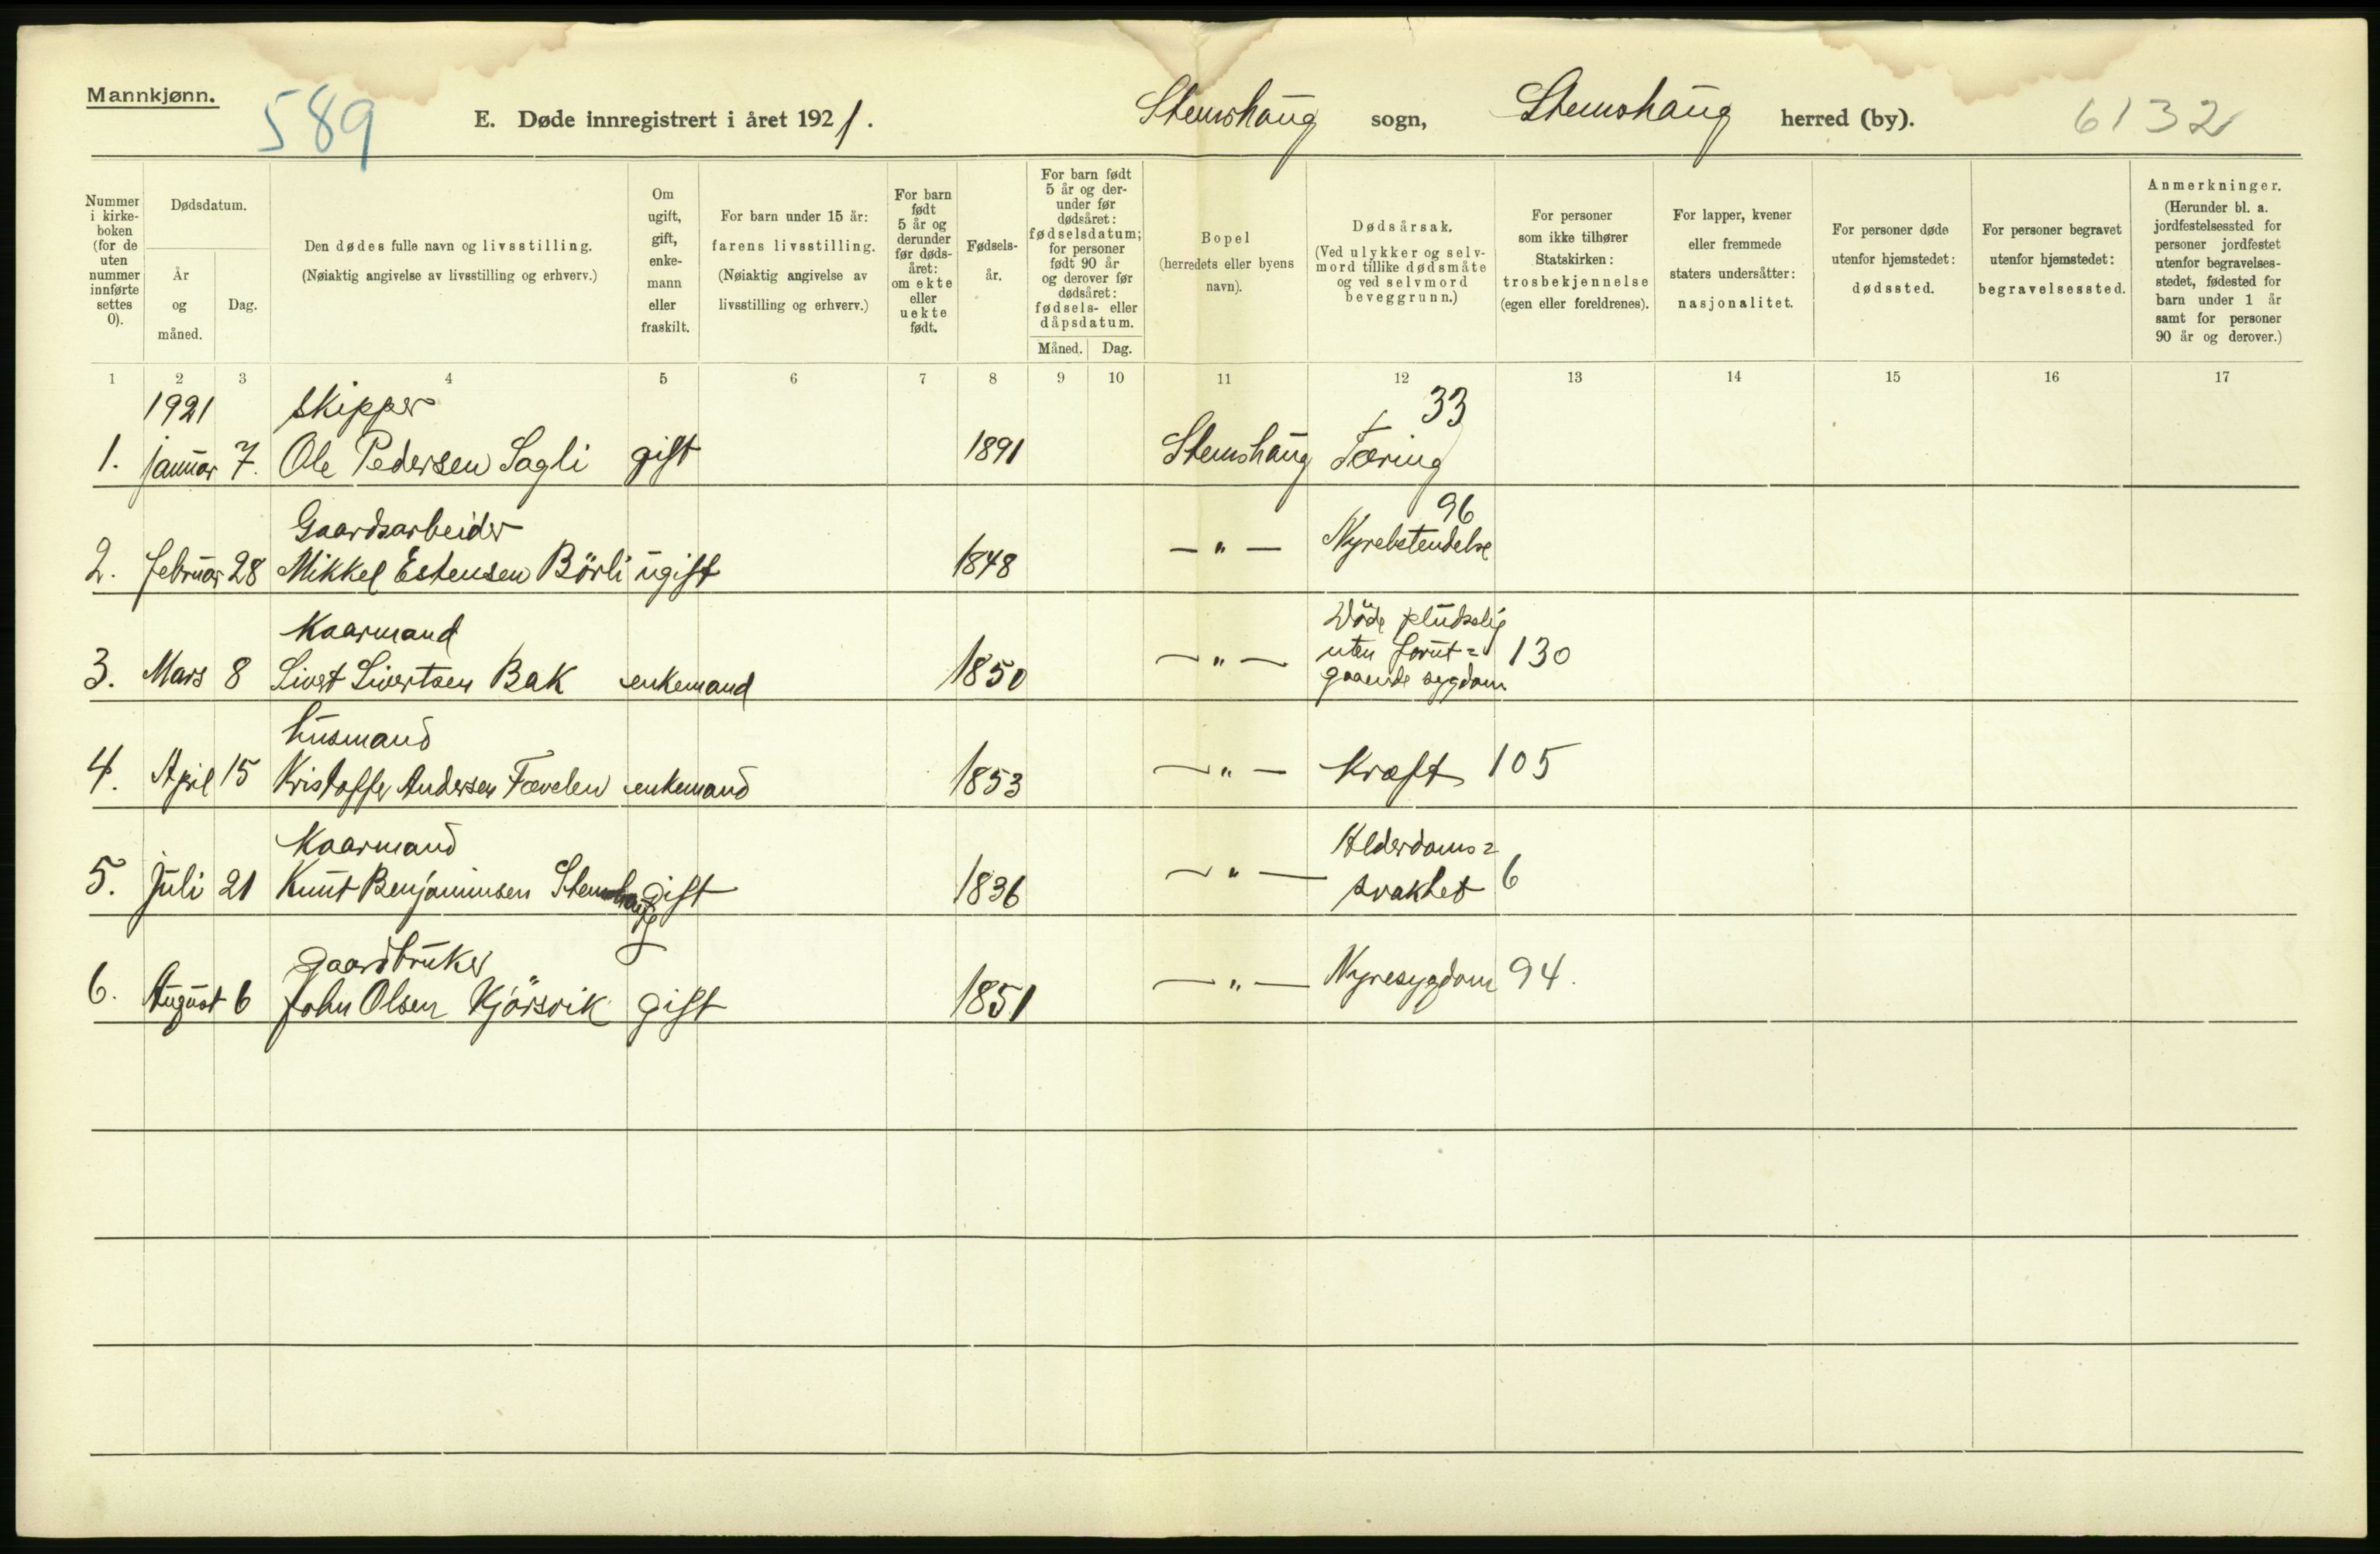 Mannkjønn.
589
E. Døde innregistrert i året 1921.
Stemshaug sogn, Stemshaug herred (by).
6132
Nummer i kirke-boken (for de uten nummer innførte settes 0).
Dødsdatum.
År og måned.
Dag.
Den dødes fulle navn og livsstilling.
(Nøiaktig angivelse av livsstilling og erhverv.)
Om ugift, gift, enke-mann eller fraskilt.
For barn under 15 år:
farens livsstilling.
(Nøiaktig angivelse av livsstilling og erhverv.)
For barn født 5 år og derunder før døds-året: om ekte eller uekte født.
Fødsels-år.
For barn født 5 år og der-under før dødsåret: fødselsdatum; for personer født 90 år og derover før dødsåret: fødsels- eller dåpsdatum.
Måned. Dag.
Bopel
(herredets eller byens navn).
Dødsårsak.
(Ved ulykker og selv-mord tillike dødsmåte og ved selvmord beveggrunn.)
For personer som ikke tilhører Statskirken: trosbekjennelse (egen eller foreldrenes).
For lapper, kvener eller fremmede staters undersåtter: nasjonalitet.
For personer døde utenfor hjemstedet: dødssted.
For personer begravet utenfor hjemstedet: begravelsessted.
Anmerkninger.
(Herunder bl. a. jordfestelsessted for personer jordfestet utenfor begravelses-stedet, fødested for barn under 1 år samt for personer 90 år og derover.)
1 2 3 4 5 6 7 8 9 10 11 12 13 14 15 16 17
1921 skipper 33
1. januar 7. Ole Pedersen Sagli gift 1891 Stemshaug Tæring
Gaardsarbeider 96
2. februar 28 Mikkel Estensen Börli ugift 1848 — " — Nyrebetendelse
Kaarmand Döde pludselig
uten forut= 130
3. Mars 8 Sivert Sivertsen Bak enkemand 1850 — " — gaaende sygdom
husmand
4. April 15 Kristoffer Andersen Tævelen enkemand 1853 — " — Kræft 105
Kaarmand Alderdoms=
5. juli 21 Knut Benjaminsen Stemshaug gift 1836 — " — svakhet 6
gaardbruker
6. August 6 John Olsen Kjörsvik gift 1851 — " — Nyresygdom 94.